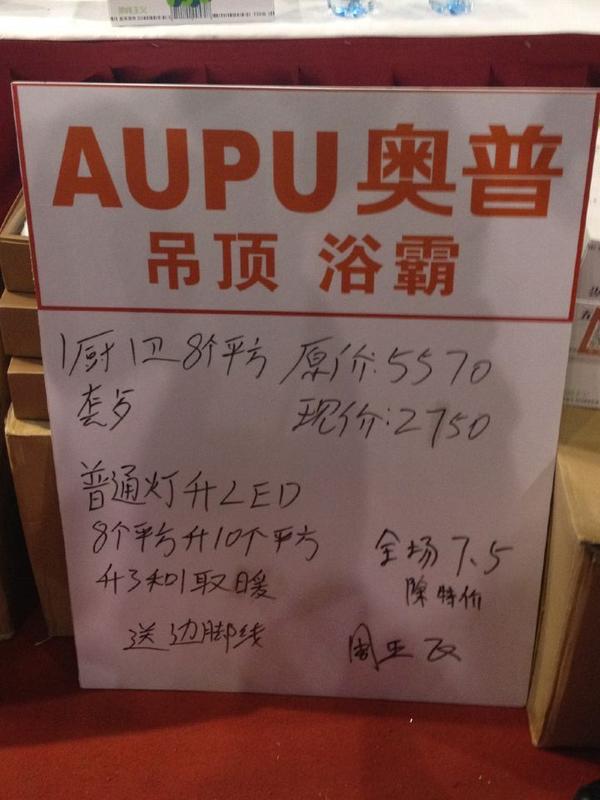 AUPU奥普
吊顶 浴霸
1厨1卫8个平方 原价:5570
套多 现价:2750
普通灯升LED
8个平方升10个平方
升3和1取暖
送边脚线
全场7.5
除特价